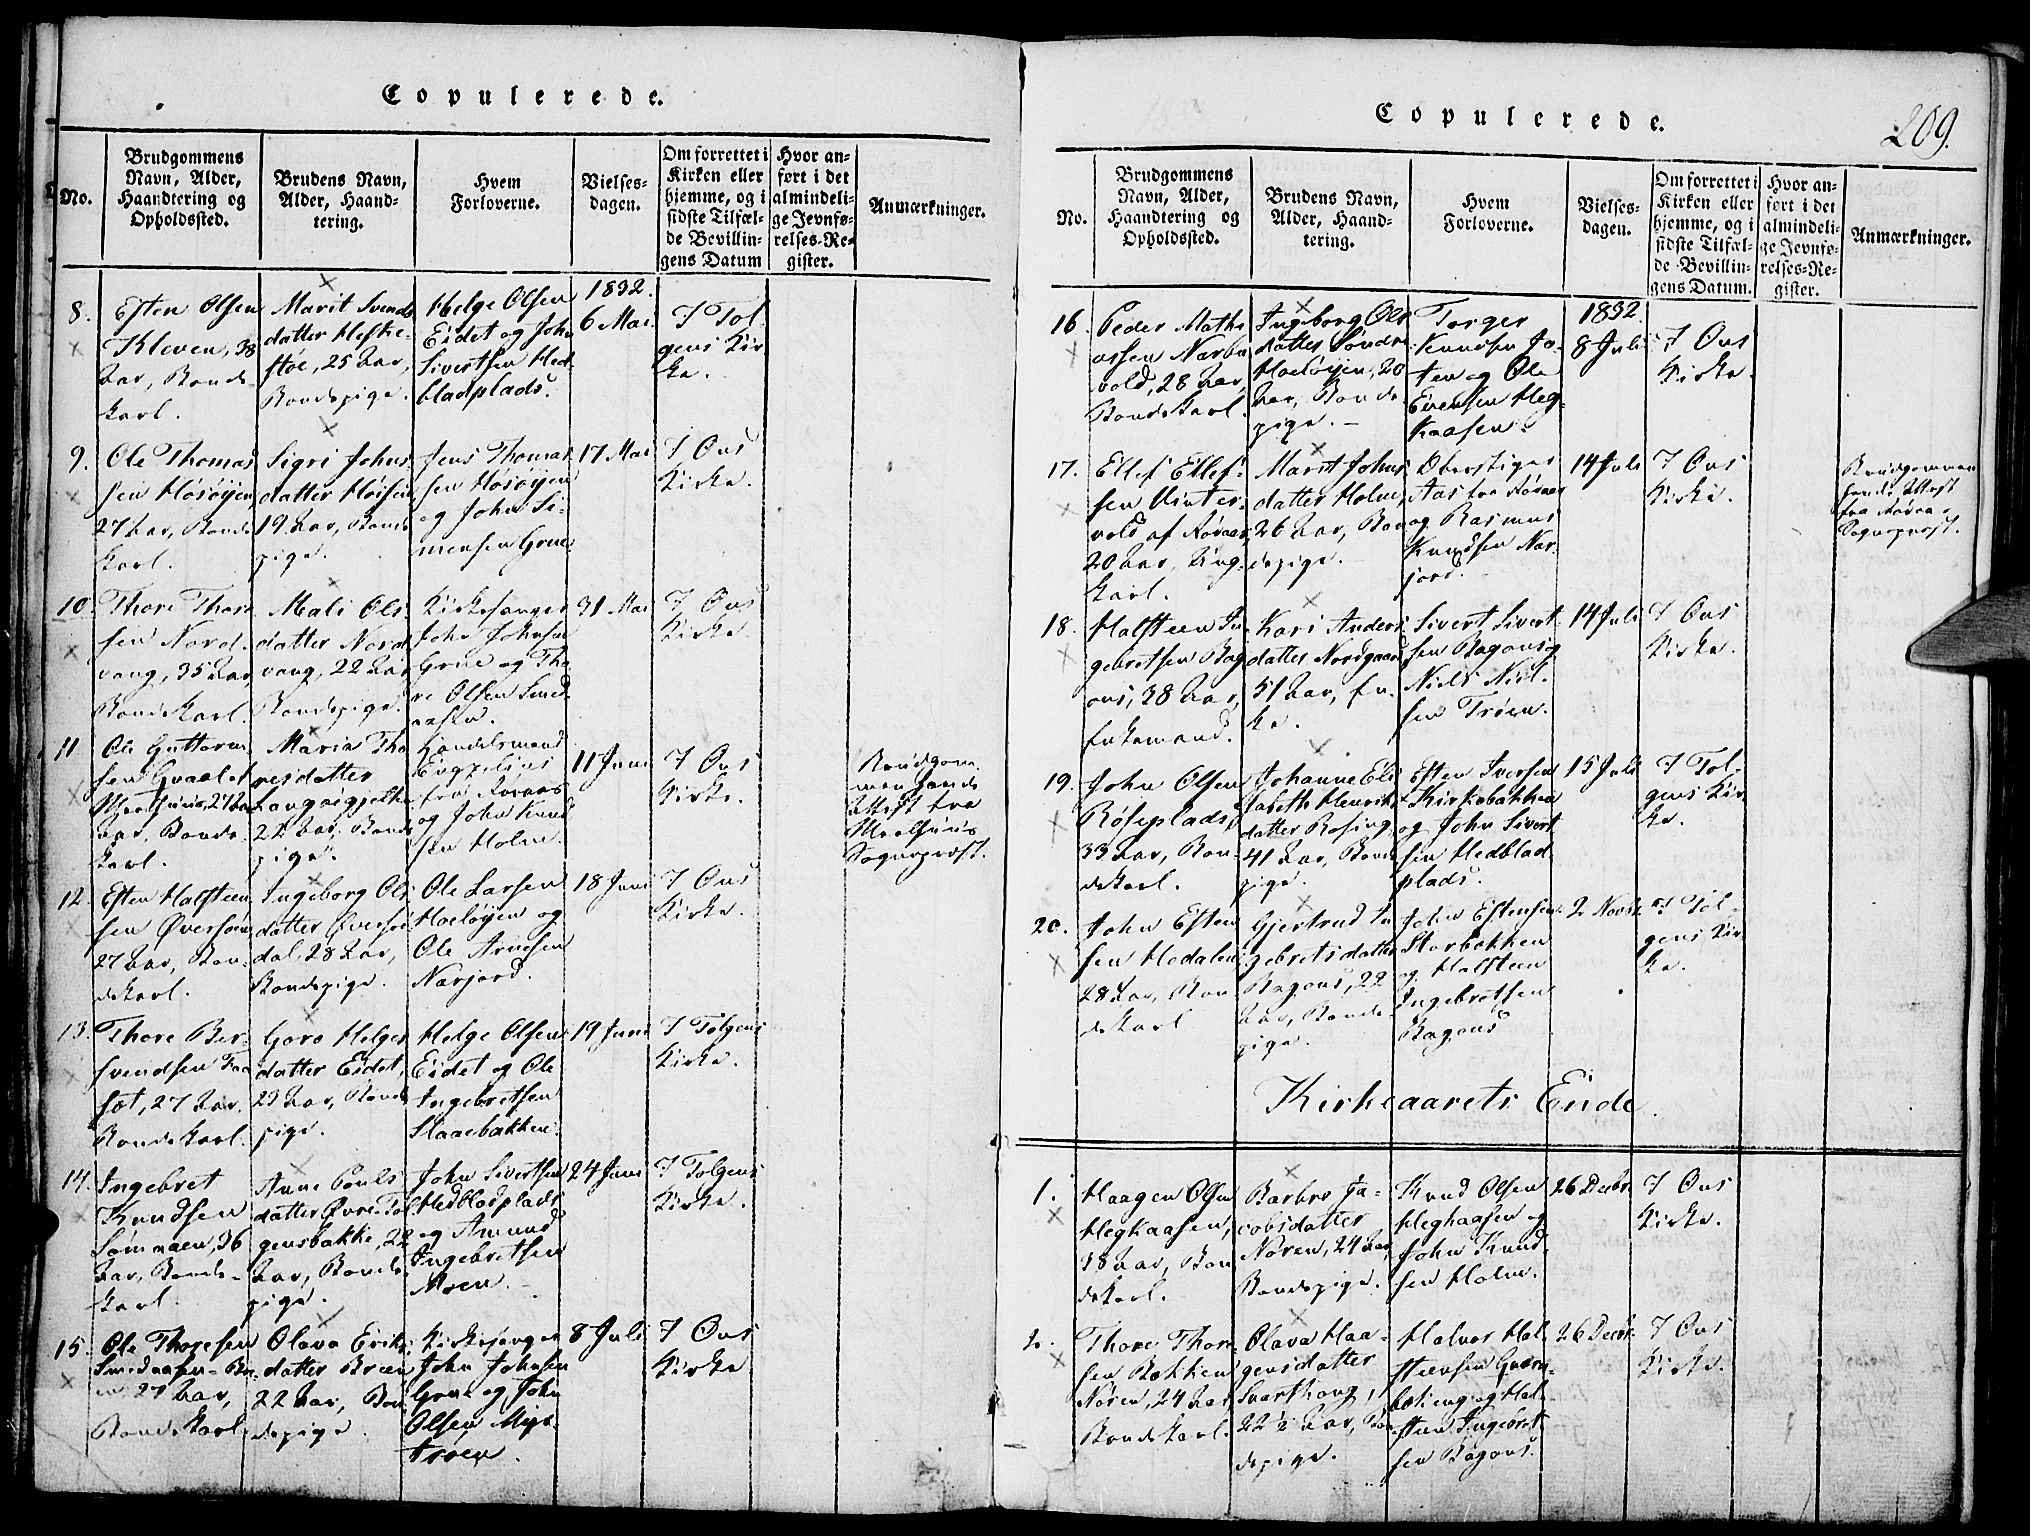 Copulerede.
No.
Brudgommens
Navn, Alder,
Haandtering og
Opholdssted.
Brudens Navn,
Alder, Haand-
tering.
Hvem
Forloverne.
Vielses-
dagen.
Om forrettet i
Kirken eller
hjemme, og i
sidste Tilfæl-
de Bevillin-
gens Datum
Hvor an-
ført i det
almindeli-
ge Jevnfø-
relses-Re-
gister.
Anmærkninger.
1832.
8.
Esten Olsen
Kleven, 38
Aar, Bonde
karl.
Marit Svends
datter Heske-
støe, 25 Aar,
Bondepige.
Helge Olsen
Eidet og John
Sivertsen Hed-
bladplads.
6 Mai
I Tol-
gens Kir
ke.
9.
Ole Thomas
sen Hosøyen
27 Aar, Bonde
karl.
Sigri Johns
datter
19 Aar, Bonde
pige.
Jens Thomas
sen Hosøyen
og John Si-
mensen Grue.
17 Mai
I Ous
Kirke.
10.
Thore Thore
sen Nord-
vang, 35 Aar,
Bondekarl.
Mali Ols
datter Nord
vang, 22 Aar
Bondepige.
Kirkesanger
John Johnsen
Grue og Tho
re Olsen Smed
aasen.
31 Mai
I Ous
Kirke.
11
Ole Guttorm
sen
27
Aar, Bonde
karl.
Maria Tho
resdatter
22 Aar, Bonde
pige.
Handelsmand
fra Røraas
og John Knud
sen Holm.
11 Juni
I Ous
Kirke.
Brudgom
men havde
Attest fra
Sognepræst.
12.
Esten Halsteen
sen Øversøe
27 Aar, Bon-
dekarl.
Ingeborg Ols
datter Øversjø
dal, 28 Aar,
Bondepige.
Ole Larsen
Hoeløyen og
Ole Arnesen
Narjord.
18 Juni
I Ous
Kirke.
13.
Thore Ber-
svendsen Faa
sæt, 27 Aar.
Bondekarl.
Goro Helges
datter Eidet,
29 Aar, Bonde
pige.
Helge Olsen
Eidet og Ole
Ingebretsen
Staaebakken.
19 Juni
I Tolgens
Kirke.
14.
Ingebret
Knudsen
36
Aar, Bonde-
karl.
Anne Pouls
datter Øvre Tol
gensbakke, 22
Aar, Bonde
pige.
John Sivertsen
Hedbladplads
og Amund
Ingebretsen
Moen.
24 Juni
I Tolgens
Kirke.
15.
Ole Thoresen
Smedaasen
27 Aar,
Bondekarl.
Olava Eriks
datter Breen
22 Aar, Bon
depige.
Kirkesanger
John Johnsen
Grue og John
Olsen
8 Juli
I Ous
Kirke.
Copulerede.
209.
No.
Brudgommens
Navn, Alder,
Haandtering og
Opholdssted.
Brudens Navn,
Alder, Haand-
tering.
Hvem
Forloverne.
Vielses-
dagen.
Om forrettet i
Kirken eller
hjemme, og i
sidste Tilfæl-
de Bevillin-
gens Datum.
Hvor an-
ført i det
almindeli-
ge Jevnfø-
relses-Re-
gister.
Anmærkninger.
1832.
16.
Peder Mathi
assen Narbu
vold, 28 Aar,
Bondekarl.
Ingeborg Ols
datter Søndre
Hoeløyen, 20
Aar, Bonde
pige.
Torger
Knudsen Jo-
ten og Ole
Evensen Heg-
kaasen.
8 Juli
I Ous
Kirke.
17.
Ellef Ellef-
sen Vinter-
vold af Røraas,
20 Aar, Ung-
karl.
Marit Johns
datter Holm,
26 Aar, Bon
depige.
Oberstiger
Aas fra Røraas
og Rasmus
Knudsen Nar-
jord.
14 Juli
I Ous
Kirke.
Brudgommen
havde Attest
fra Røraa-
Sognepræst.
18.
Halsteen In-
gebretsen Bag
ous, 38 Aar,
Enkemand.
Kari Anders
datter Nordgaard
51 Aar, En-
ke.
Sivert Sivert-
sen Bagous og
Niels Niel-
sen Trøen.
14 Juli
I Ous
Kirke.
19.
John Olsen
Røseplads,
33 Aar, Bon-
dekarl.
Johanne Eli
sabeth Henriks
datter Rosing,
41 Aar, Bonde
pige.
Esten Iversen
Kirkebakken
og John Sivert
sen Hedblad
plads.
15 Juli
I Tol-
gens Kir
ke.
20.
John Esten
sen Hodalen
28 Aar, Bon
dekarl
Gjertrud In
gebretsdatter
Bagous, 22
Aar, Bonde-
pige.
John Estensen
Storbakken
og Halsteen
Ingebretsen
Bagous
2 Novbr.
I Tol-
gens Kir
ke.
Kirkeaarets Ende.
1.
Haagen Olsen
Hegkaasen,
38 Aar, Bon
dekarl.
Barbro Ja-
cobsdatter
Noren, 24 Aar,
Bondepige.
Knud Olsen
Heghaasen og
John Knud-
sen Holm.
26 Decbr.
I Ous
Kirke.
2.
Thore Thore
sen Bakken
Nøren, 24 Aar
Bondekarl.
Olava Haa-
gensdatter
22 1/2 Aar, Bon
depige.
Halvor Hal-
steensen
og Hal-
steen Ingebret-
sen Bagous.
26 Decbr.
I Ous
Kirke.